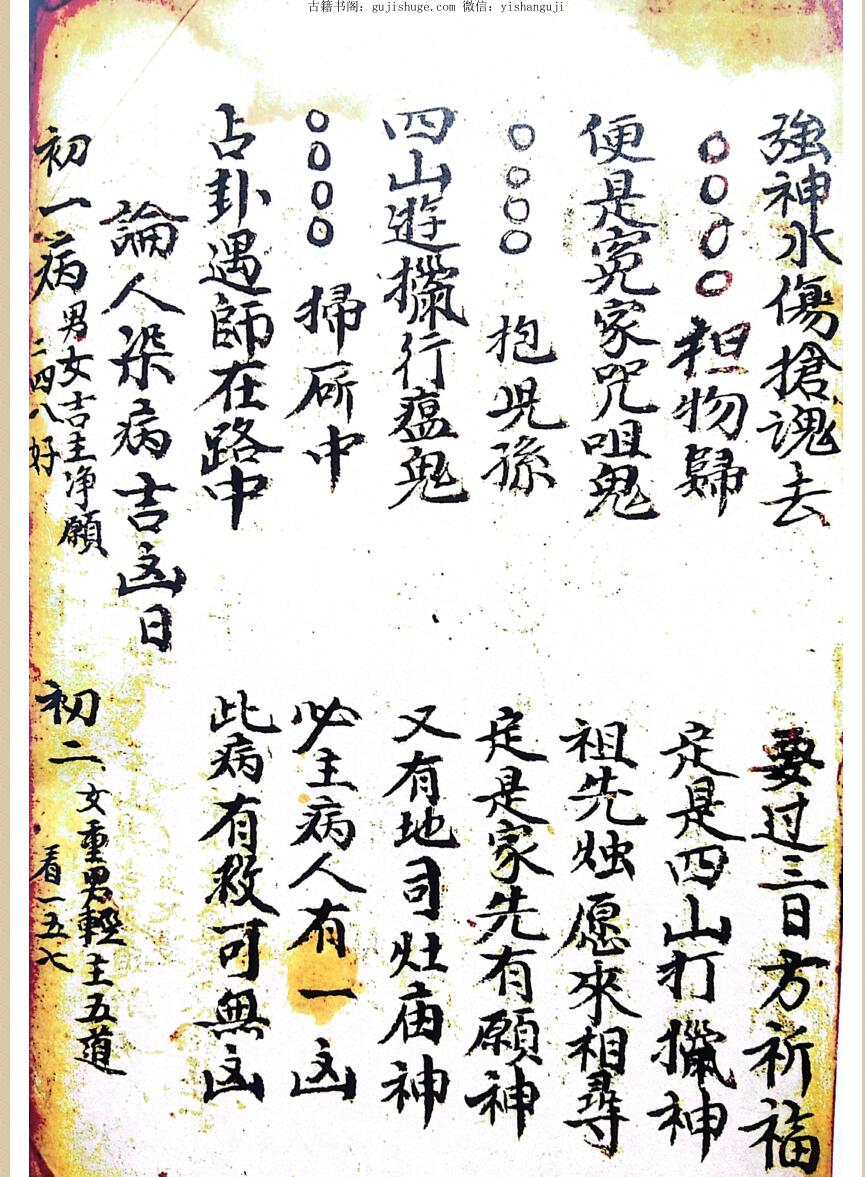 古籍书阁：gujishuge.com 微信：yishanguji
強神水傷搶魂去
要过三日方祈福
○○○○ 担物歸
定是四山打獵神
便是冤家咒咀鬼
祖先烛愿來相尋
○○○○ 抱児孫
定是家先有願神
四山遊獵行瘟鬼
又有地司灶庙神
○○○○ 掃所中
必主病人有一凶
占卦遇師在路中
此病有救可無凶
論人染病吉凶日
初一病 男女吉主净願
二四八好
初二 女重男輕主五道
看一五七